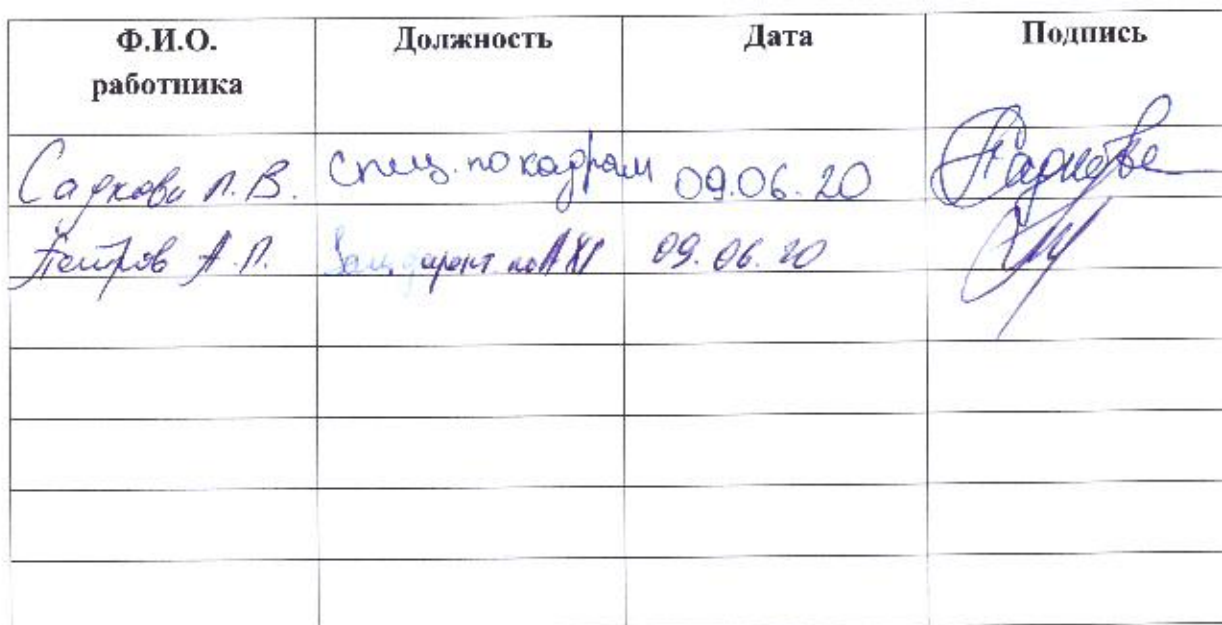 Ф.И.О. работника Должность Дата Подпись
Садкова Л. В. Спец. по кадрам 09.06.20
Петров А. П. Зам. по АХЧ 09.06.20